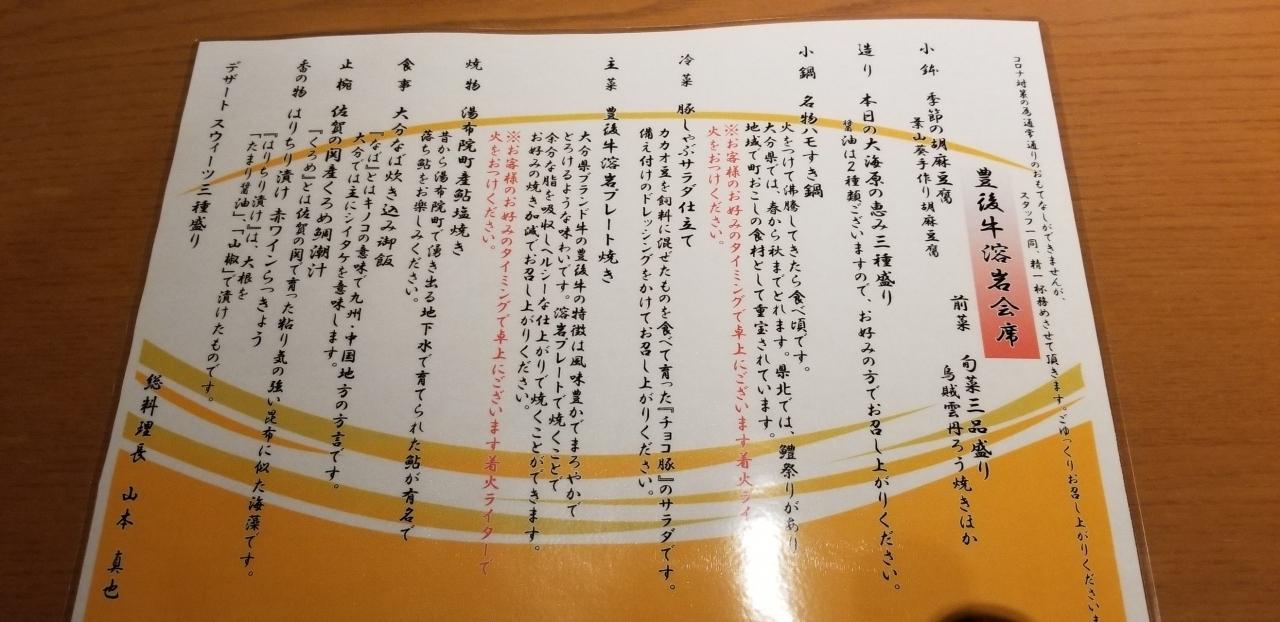 コロナ対策の為通常通りのおもてなしができませんが、
スタッフ一同 精一杯務めさせて頂きます。ごゆっくりお召し上がりくださいま
豊後牛溶岩会席
前菜 旬菜三品盛り
烏賊雲丹ろう焼きほか
小鉢 季節の胡麻豆腐
葉山葵手作り胡麻豆腐
造り 本日の大海原の恵み三種盛り
醤油は2種類ございますので、お好みの方でお召し上がりください。
小鍋 名物ハモすき鍋
火をつけて沸騰してきたら食べ頃です。
大分県では、春から秋までとれます。県北では、鱧祭りがあり
地域で町おこしの食材として重宝されています。
※お客様のお好みのタイミングで卓上にございます着火ライ
火をおつけください。
冷菜 豚しゃぶサラダ仕立て
カカオ豆を飼料に混ぜたものを食べて育った『チョコ豚』のサラダです。
備え付けのドレッシングをかけてお召し上がりください。
主菜 豊後牛溶岩プレート焼き
大分県ブランド牛の豊後牛の特徴は風味豊かでまろやかで
とろけるような味わいです。溶岩プレートで焼くことで
余分な脂を吸収しヘルシーな仕上がりで焼くことができます。
お好みの焼き加減でお召し上がりください。
※お客様のお好みのタイミングで卓上にございます着火ライターで
火をおつけください。
焼物 湯布院町産鮎塩焼き
昔から湯布院町で湧き出る地下水で育てられた鮎が有名で
落ち鮎をお楽しみください。
食事 大分なば炊き込み御飯
『なば』とはキノコの意味で九州・中国地方の方言です。
大分では主にシイタケを意味します。
止椀 佐賀の関産くろめ鯛潮汁
『くろめ』とは佐賀の関で育った粘り気の強い昆布に似た海藻です。
香の物 はりちり漬け 赤ワインらっきょう
『はりちり漬け』は、大根を
「たまり醤油」、「山椒」で漬けたものです。
デザート スウィーツ三種盛り
総料理長 山本 真也